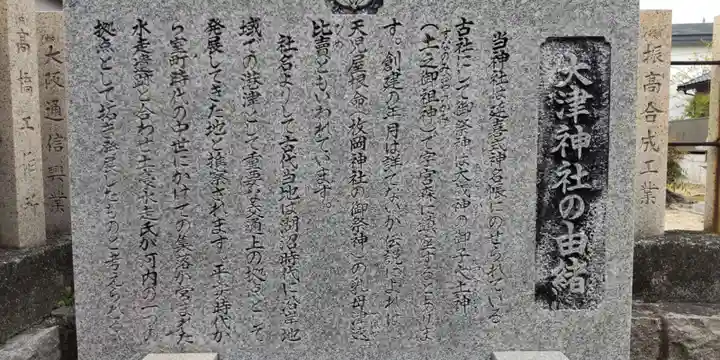 大津神社の由緒
当神社は延喜式神名帳にのせられている
古社にして御祭神は大歳神の御子大土神
(土之御祖神)で字宮森に鎮座するとあります
す。創建の年月は詳でないが伝説に上れば
天児屋根命(枚岡神社の御祭神)の乳母
比賣ともいわれています。
社名よりして古代当地は湖沼時代に沿岸地
域での港津として重要な交通上の地点として
発展してきた地と推察されます。平安時代か
ら室町時代の中世にかけての集落が営まれた
水走遺跡と合わせ土豪水走氏が河内の一つの
拠点として
ものと考えられて
振高合成工業
大阪通信興業
高橋工作所